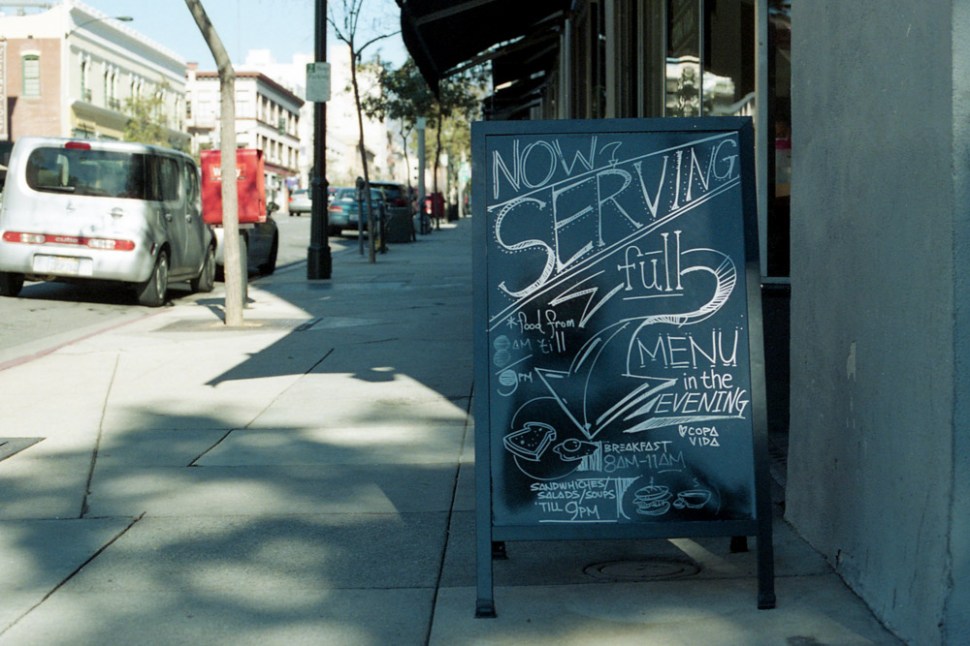 NOW
SERVING
full
*food from
8AM till
9PM
MENU
in the
EVENING
COPA
VIDA
BREAKFAST
8AM-11AM
SANDWHICHES/
SALADS/SOUPS
'TILL 9PM